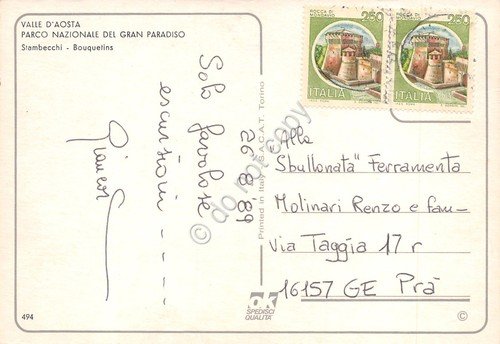 VALLE D'AOSTA
PARCO NAZIONALE DEL GRAN PARADISO
Stambecchi - Bouquetins
26.8.89
Solo favolose
escursioni - - - -
Printed in Italy S.A.C.A.T. Torino
250
ITALIA
250
ITALIA
Alla
"Sbullonata" Ferramenta
Molinari Renzo e fam-
via Taggia 17 r
16157 GE Prà
SPEDISCI
QUALITÀ
494
©
© do not copy